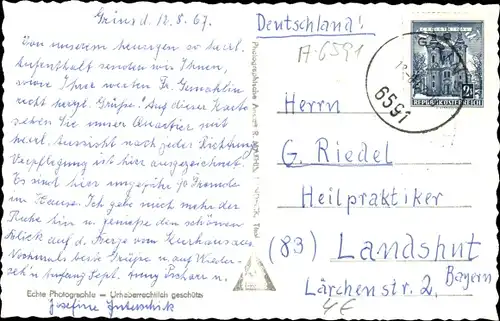 Grins d. 12.8.67.
Von unserem heurigen so herrl.
Aufenthalt senden wir Ihnen,
sowie Ihrer werten Fr. Gemahlin
recht herzl. Grüße! Auf dieser Karte
sehen Sie unser Quartier mit
herrl. Aussicht nach jeder Richtung
Verpflegung ist hier ausgezeichnet.
Es sind hier ungefähr 70 Fremde
im Hause. Ich gebe mich mehr der
Ruhe hin u. genieße den schönen
Blick auf d. Berge vom Gurhaus aus
Nochmals beste Grüße u. auf Wieder-
seh'n Anfang Sept.
Echte Photographie – Urheberrechtlich geschützt
Josefine
Deutschland!
A-6591
6591
REPUBLIK ÖSTERREICH
Herrn
G. Riedel
Heilpraktiker
(83) Landshut
Bayern
Lärchenstr. 2.
4€